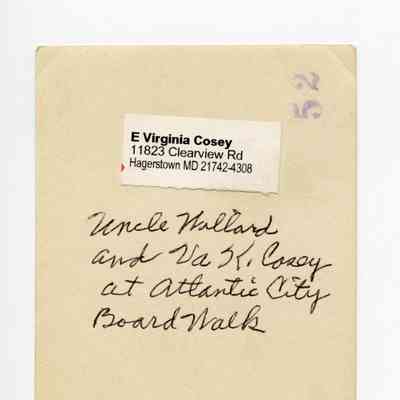 E Virginia Cosey
11823 Clearview Rd
Hagerstown MD 21742-4308
Uncle Willard
and Va K. Cosey
at Atlantic City
Board Walk